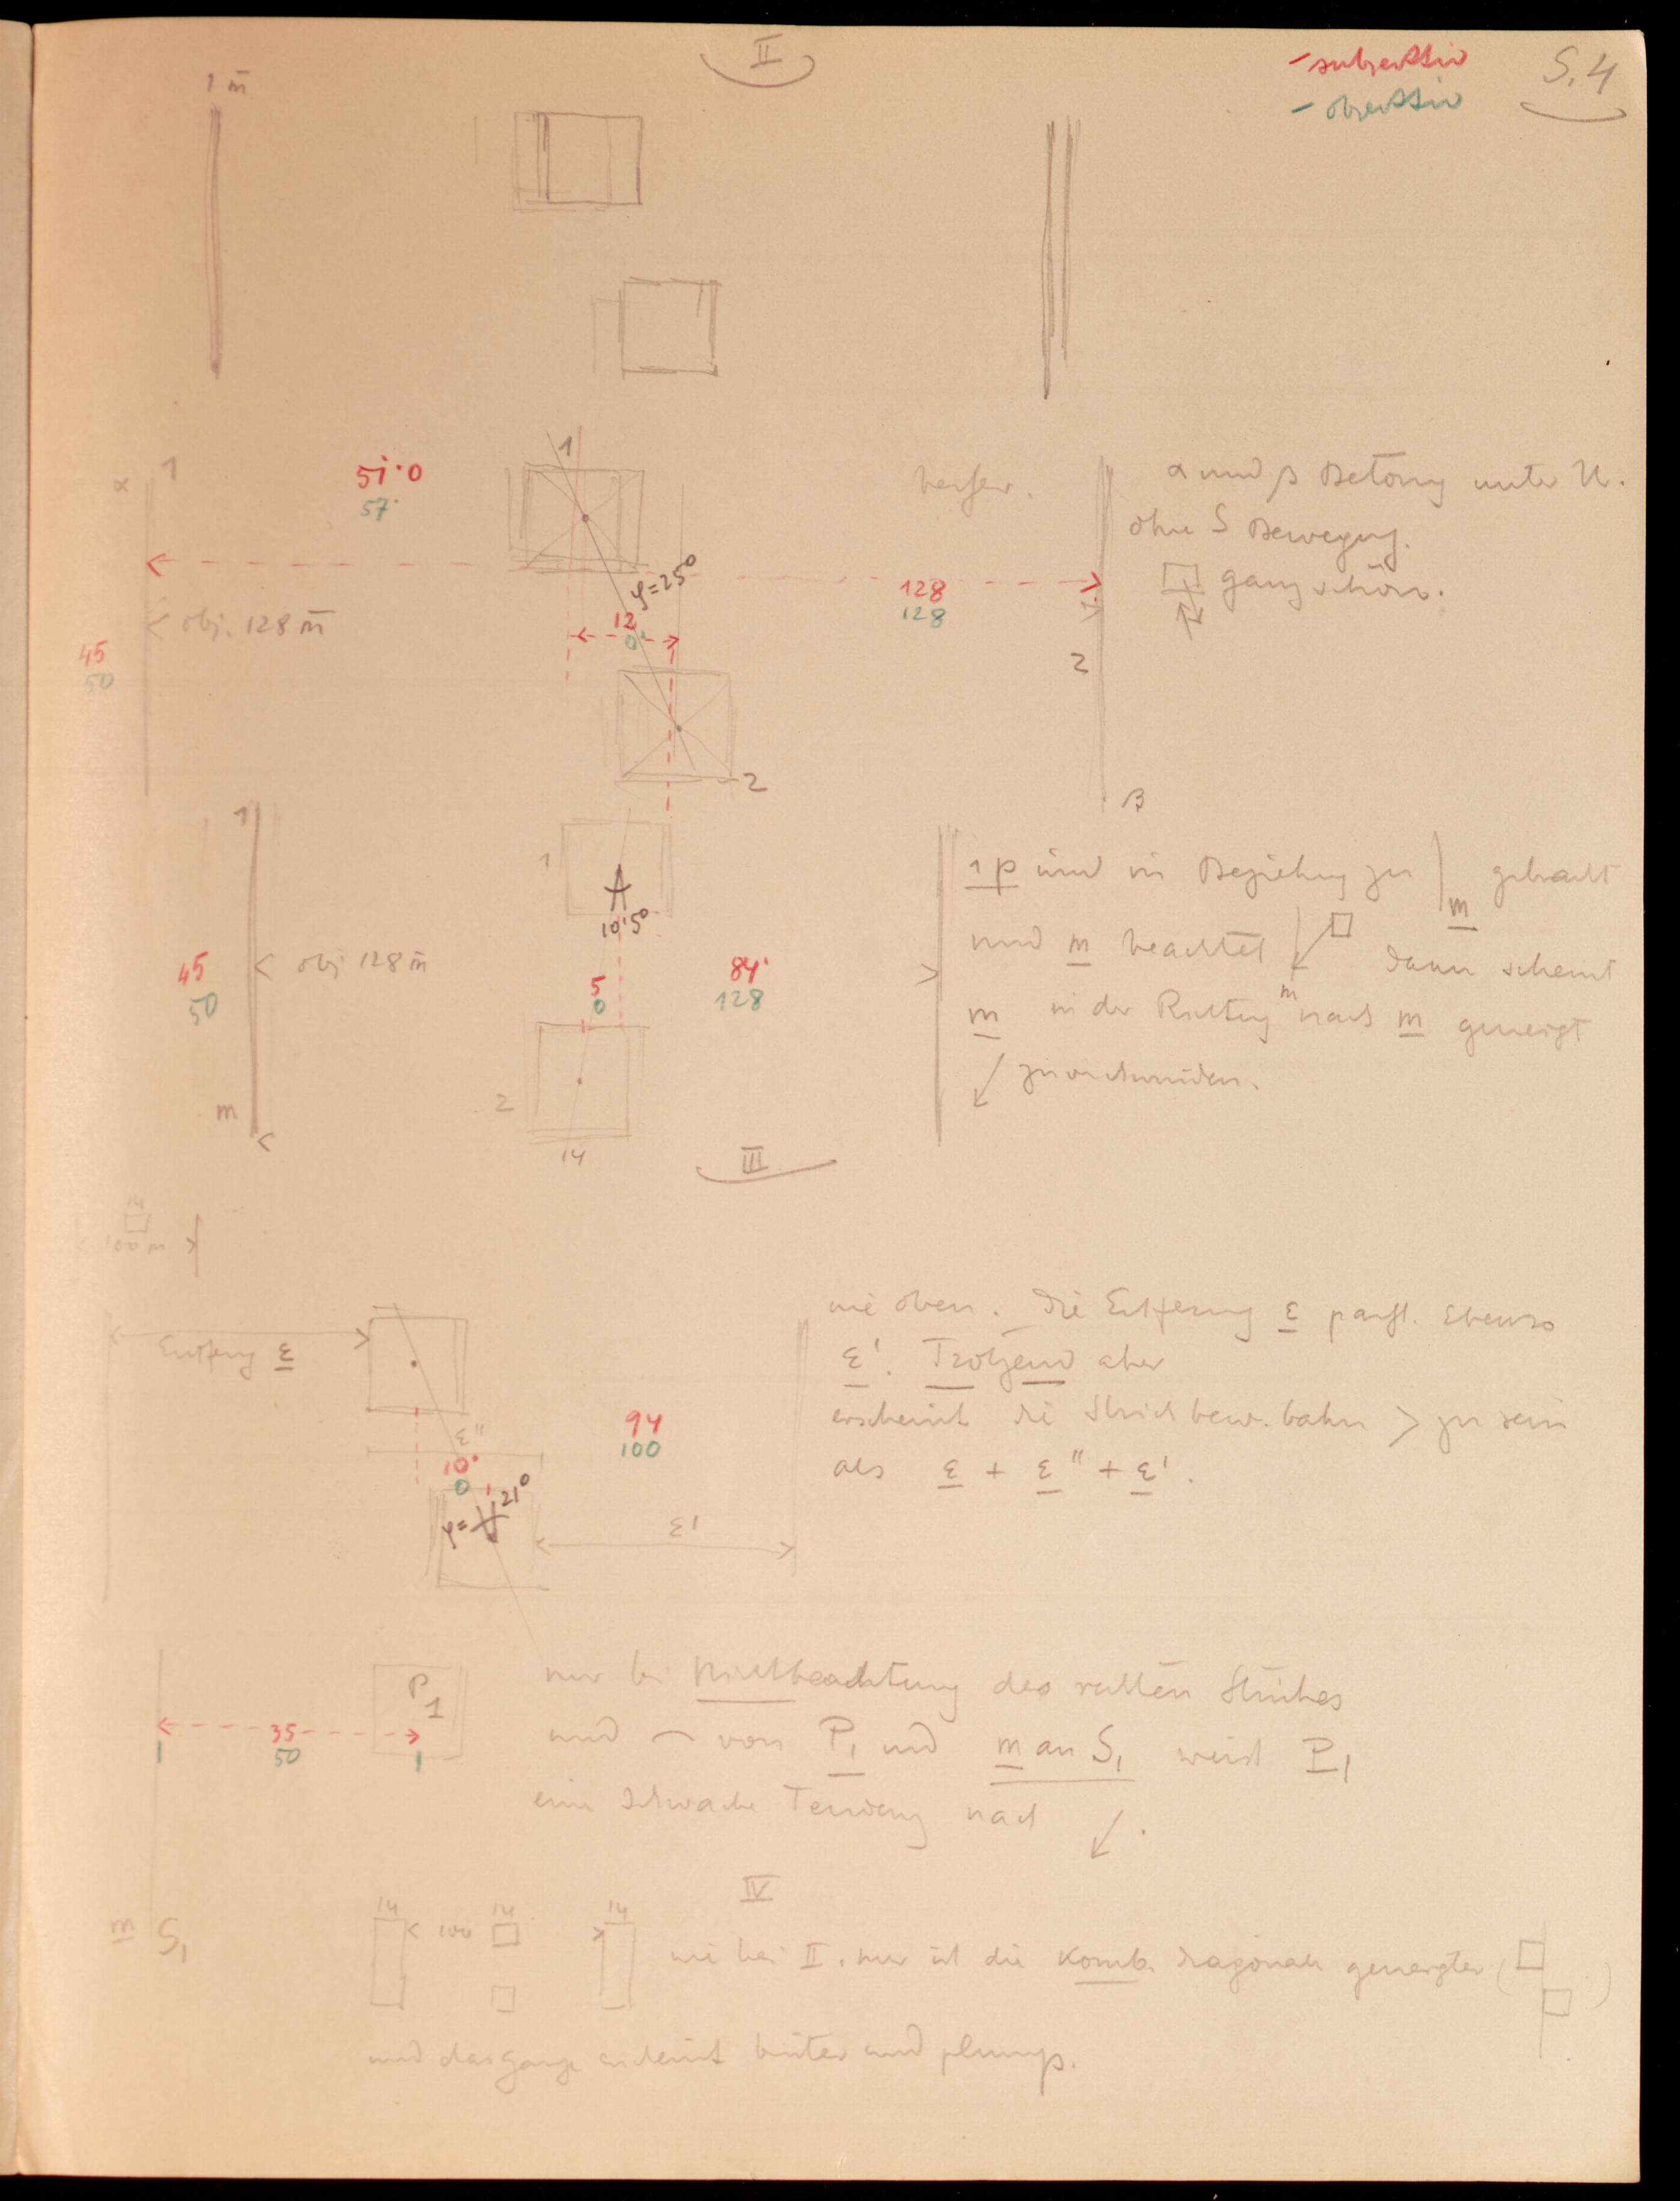 II
- subjektiv
- objektiv
S. 4
1 m̄
α 1
51·0
57·
1
φ=25°
128
128
12
0
obj. 128 m̄
45
50
2
2
β
α und β Betong unter U.
ohne S Bewegung.
ganz schön.
1
1
A
10·5°
45
50
obj 128 m̄
5
0
84·
128
m
2
14
1 p und in Beziehung zu m gebracht
und m beachtet m dann scheint
m in der Richtung nach m geneigt
zu
III
14
100 m
Entferng ε
ε''
10·
0
φ= 21°
94
100
ε'
wie oben. Die Entfernung ε paßt. Ebenso
ε'. Trotzend aber
erscheint die Strich bew. bahn > zu sein
als ε + ε'' + ε'.
P1
35
50
nur bei Nichtbeachtung des rechten Striches
und von P1 und m an S1 weist P1
eine schwache Tendenz nach ↙.
m S1
IV
14
100
14
14
wie bei II. nur ist die Komb. diagonale geneigter ( )
und das Ganze erscheint breiter und plump.